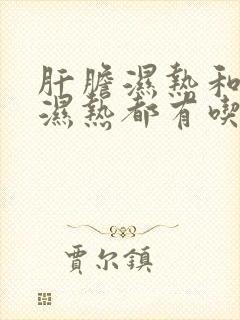 肝膽濕熱和
濕熱都有喫
賈尔鎮